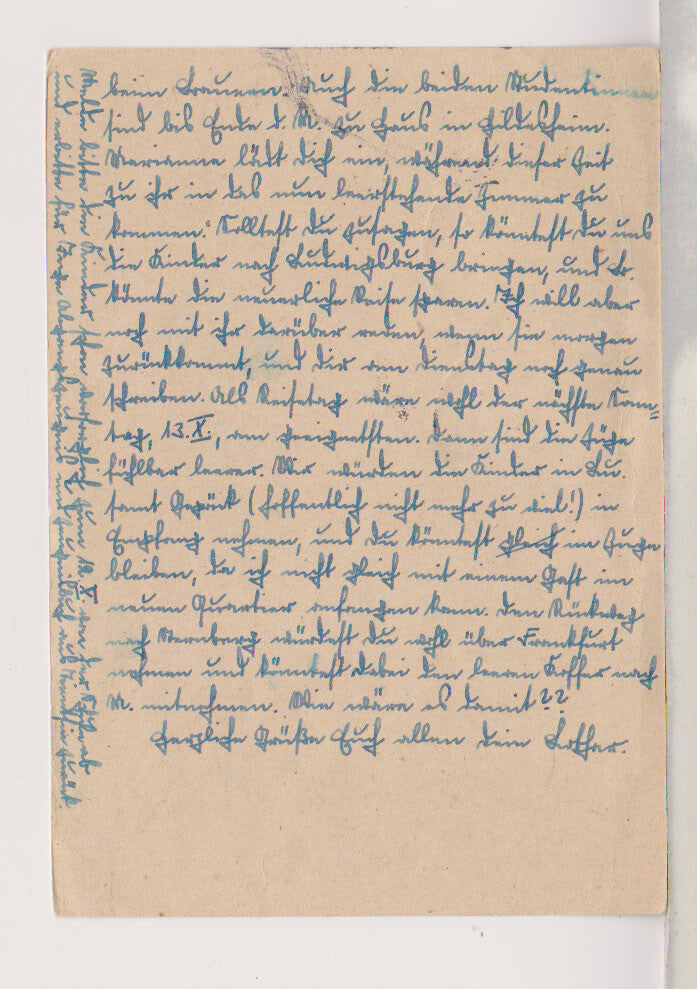 beim Trauern. Auch die beiden Studentinnen
sind bis Ende d. M. zu Haus in Hildesheim.
Marianne lädt Dich ein, während dieser Zeit
zu ihr in das nun leerstehende Zimmer zu
kommen. Solltest Du zusagen, so könntest Du uns
die Kinder nach Ludwigsburg bringen, und Tr.
könnte die neuerliche Reise sparen. Ich will aber
noch mit ihr darüber reden, wenn sie morgen
zurückkommt, und Dir am Dienstag noch genau
schreiben. Als Reisetag wäre wohl der nächste Sonn=
tag, 13.X., am geeignetsten. Dann sind die Züge
fühlbar leerer. Wir würden die Kinder in Lu.
samt Gepäck (hoffentlich nicht mehr zu viel!) in
Empfang nehmen, und Du könntest gleich im Zuge
bleiben, da ich nicht gleich mit einem Gast im
neuen Quartier anfangen kann. Den Rückweg
nach Sternberg würdest Du wohl über Frankfurt
nehmen und könntest dabei den leeren Koffer nach
M. mitnehmen. Wie wäre es damit??
Herzliche Grüße Euch allen Dein Lothar.
Melde bitte die Kinder schon vorsorglich zum 12.X. von der Schule ab
und erbitte für Abgangszeugnis und aus zurück.